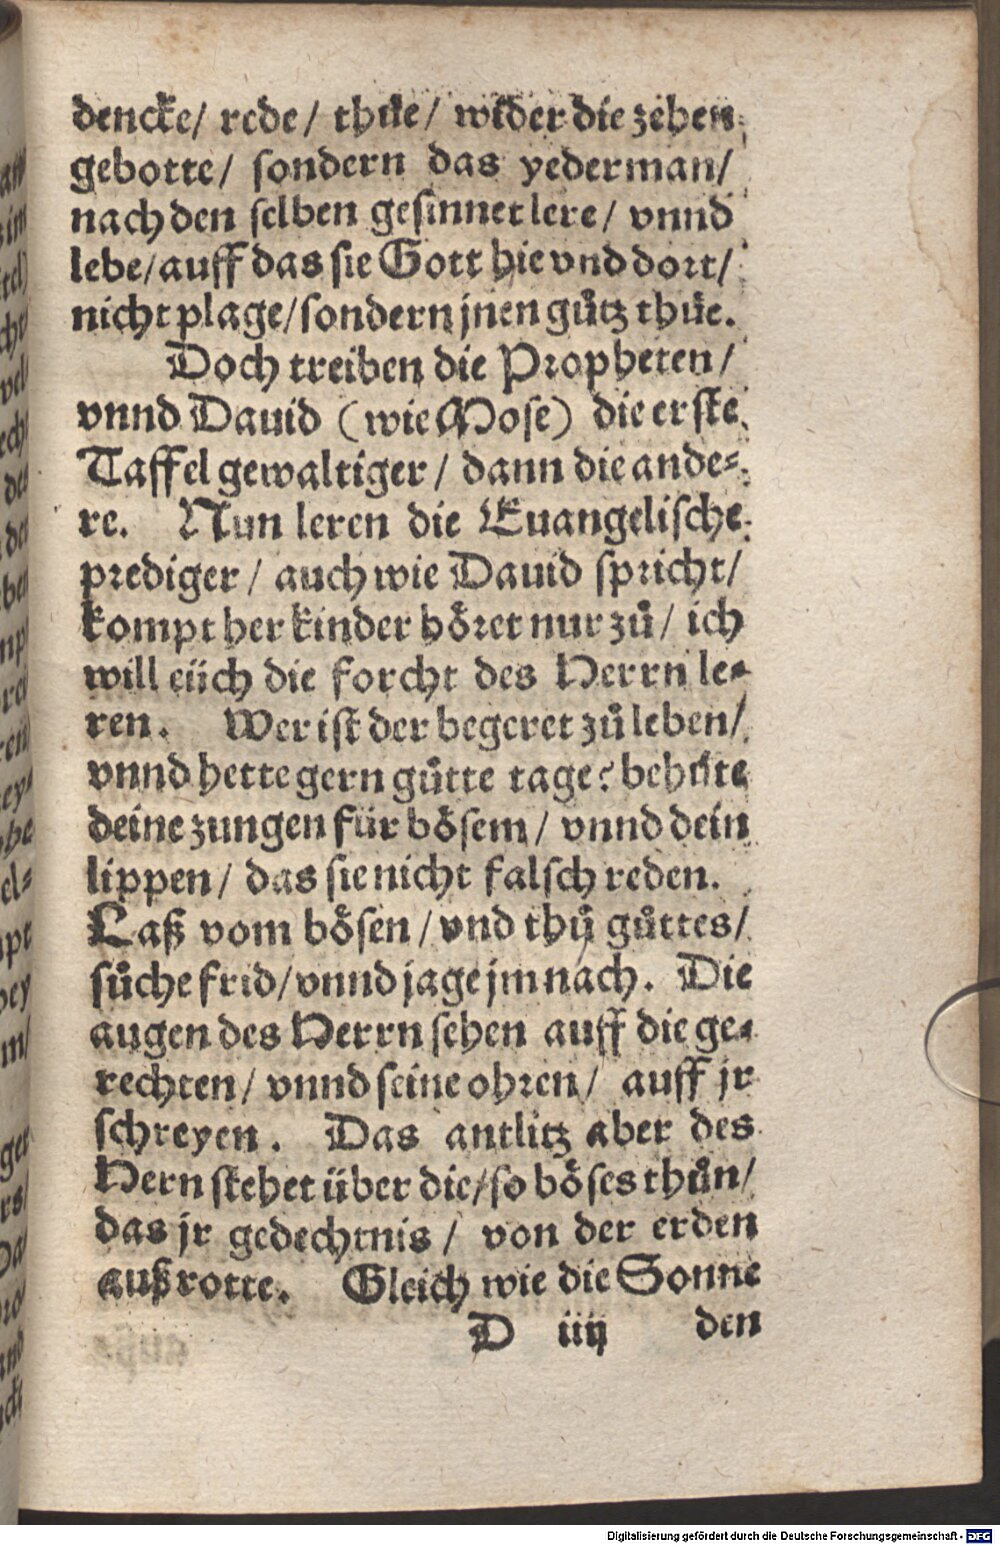 dencke/ rede/ thüe/ wider die zehen
gebotte/ sondern das yederman/
nach den selben gesinnet lere/ vnnd
lebe/ auff das sie Gott hie vnd dort/
nicht plage/ sondern jnen gůtz thüe.
Doch treiben die Propheten/
vnnd Dauid (wie Mose) die erste
Taffel gewaltiger/ dann die ande⸗
re. Nun leren die Euangelische
prediger/ auch wie Dauid spricht/
kompt her kinder höret nur zů/ ich
will eüch die forcht des Herrn le⸗
ren. Wer ist der begeret zů leben/
vnnd hette gern gůtte tage? behüte
deine zungen für bösem/ vnnd dein
lippen/ das sie nicht falsch reden.
Laß vom bösen/ vnd thů gůttes/
sůche frid/ vnnd jage jm nach. Die
augen des Herrn sehen auff die ge⸗
rechten/ vnnd seine ohren/ auff jr
schreyen. Das antlitz aber des
Hern stehet über die/ so böses thůn/
das jr gedechtnis/ von der erden
außrotte. Gleich wie die Sonne
D iiij den
Digitalisierung gefördert durch die Deutsche Forschungsgemeinschaft - DFG